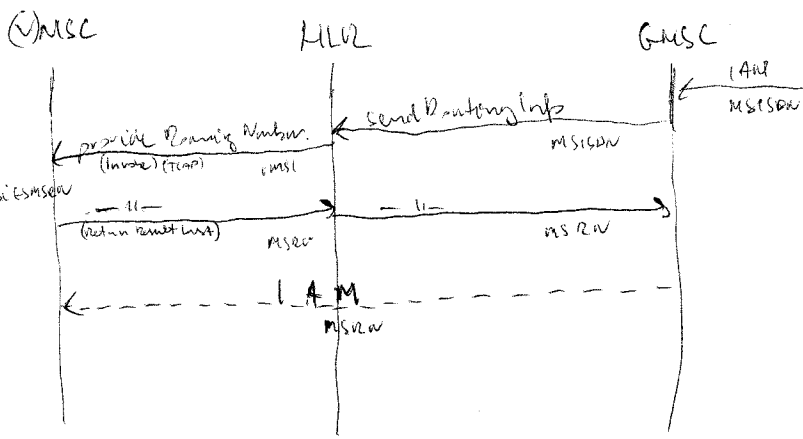 (V)MSC HLR GMSC
IAM
MSISDN
sendRoutingInfo
MSISDN
provide Roaming Number
(Invoke) (TCAP) IMSI
— 11 — — 11 —
(Return Result Last) MSRN MSRN
IAM
MSRN